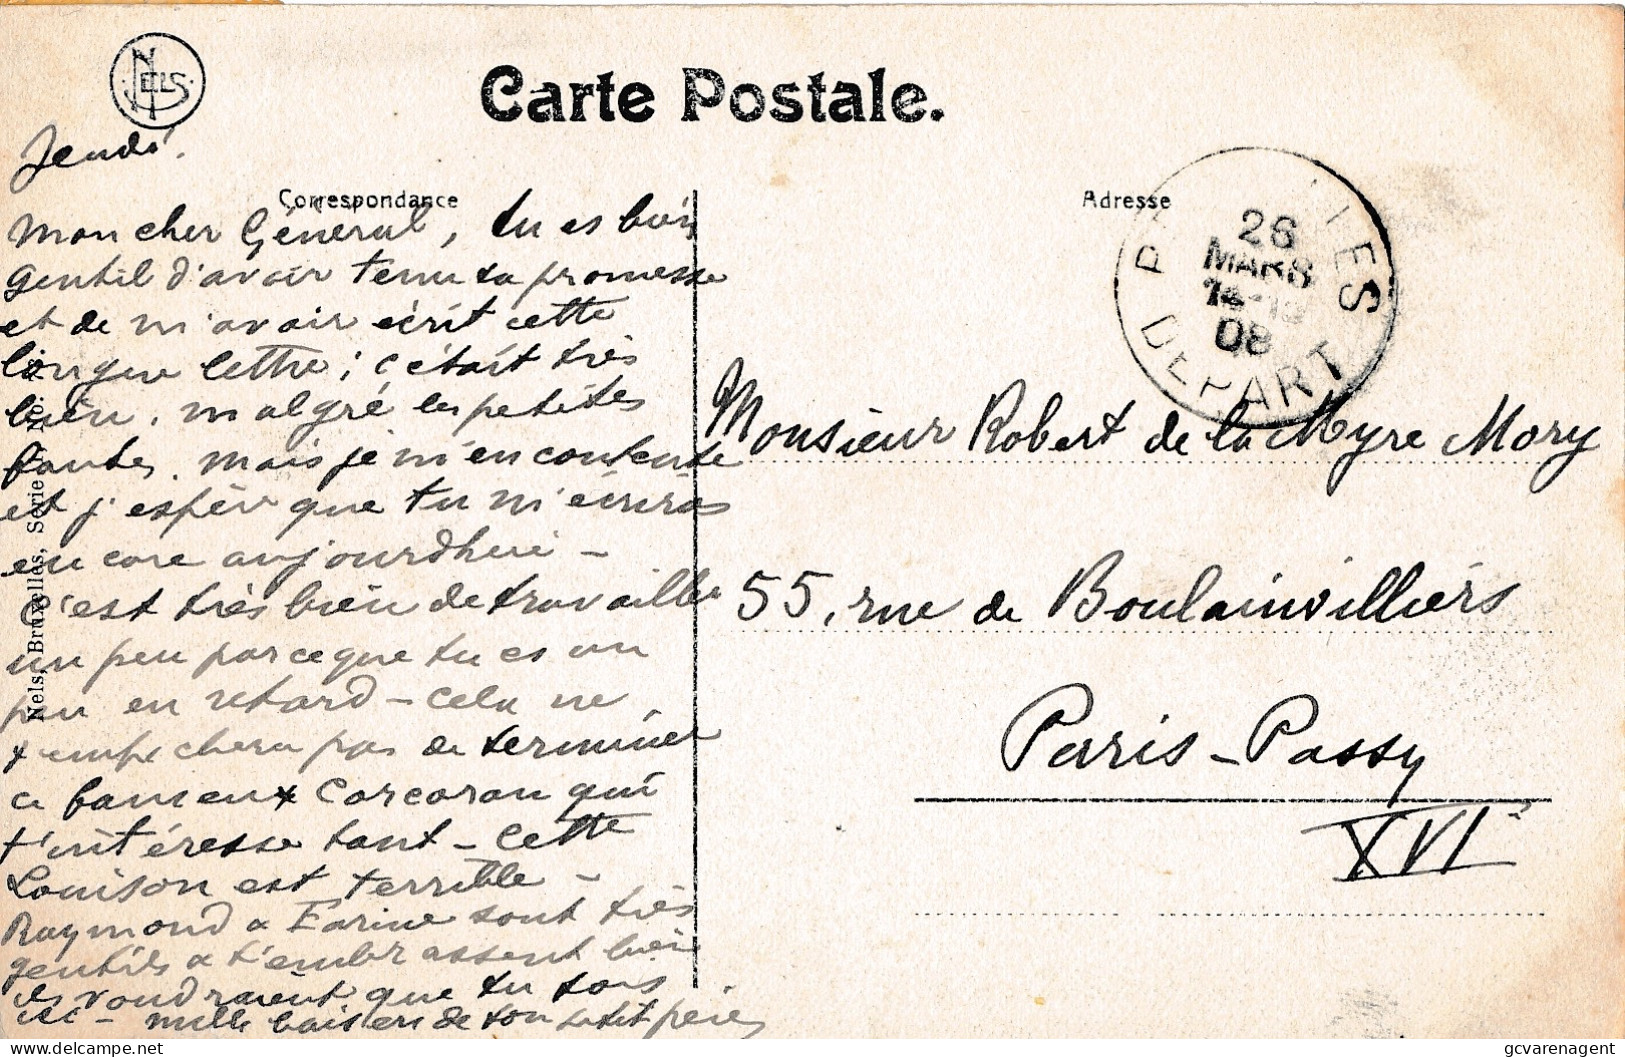 NELS
Carte Postale.
Jeudi.
Correspondance
Adresse
mon cher Général, tu es bien
gentil d'avoir tenu ta promesse
et de m'avoir écrit cette
longue lettre; c'était très
bien, malgré les petites
fautes, mais je m'en contente
et j'espère que tu m'écriras
encore aujourdhui –
C'est très bien de travailler
un peu parceque tu es un
peu en retard – cela ne
t'empechera pas de terminer
ce fameux Corcoran qui
t'intéresse tant – Cette
Louison est terrible –
Raymond & Farine sont très
gentils & t'embrassent bien
ils voudraient que tu sois
ici – mille baisers de ton petit père
Nels, Bruxelles, Série
26
MARS
08
DEPART
Monsieur Robert de la Myre Mory
55, rue de Boulainvilliers
Paris – Passy
XVI
gcvarenagent